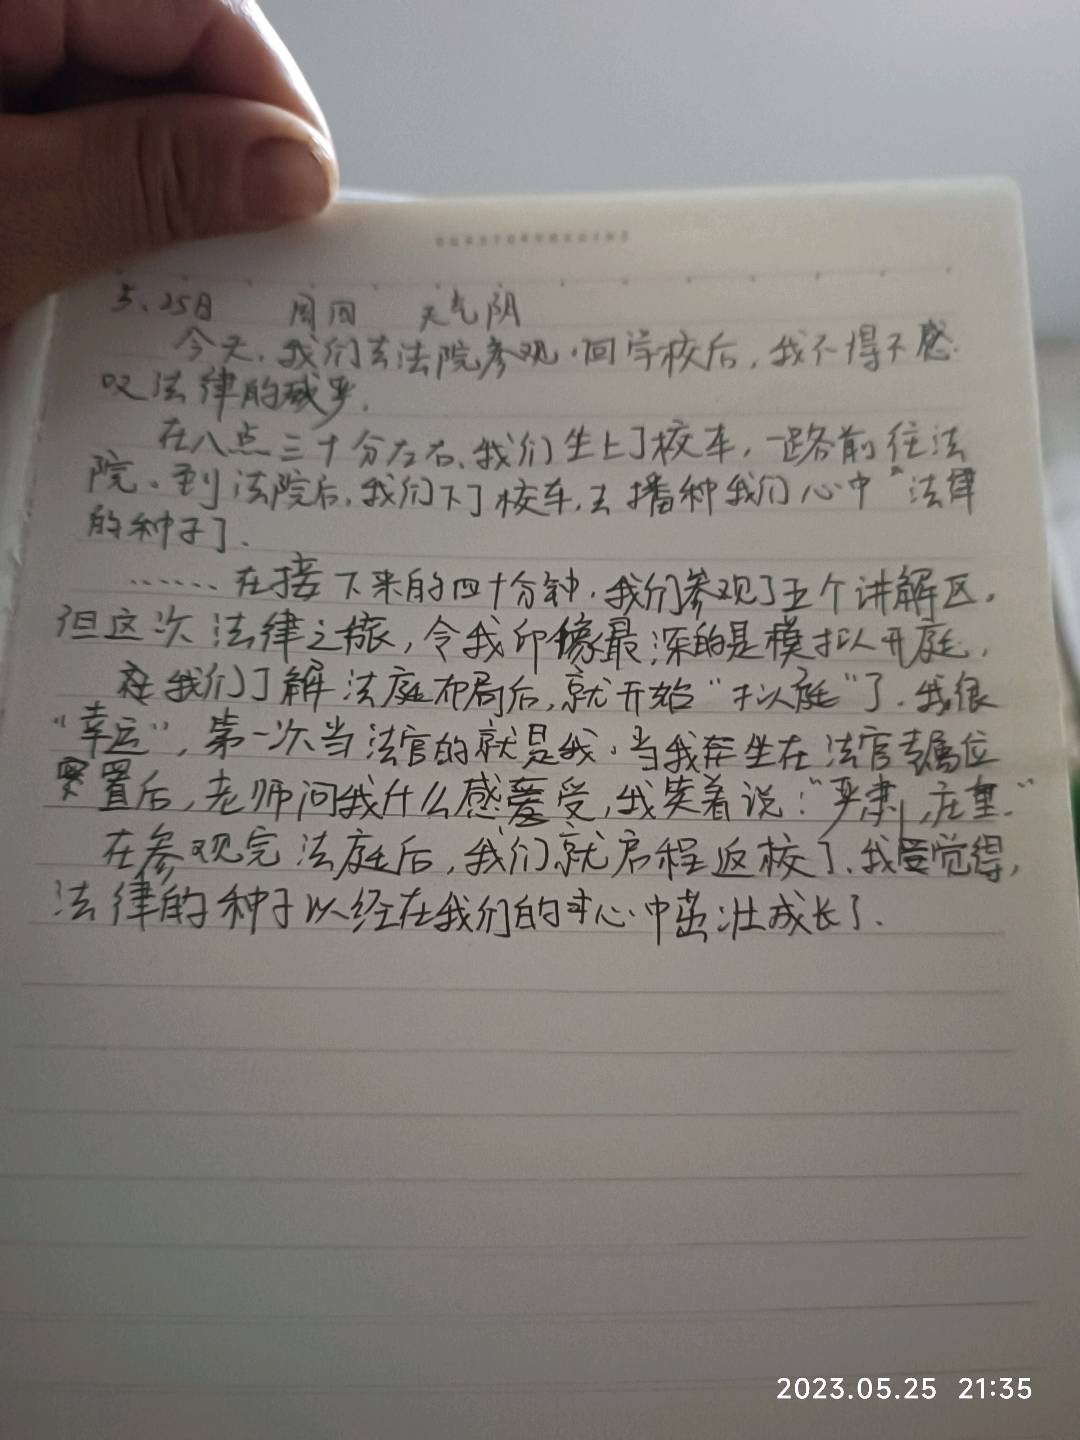 5.25日 周四 天气阴
今天,我们去法院参观.回学校后,我不得不感
叹法律的威严.
在八点三十分左右,我们坐上了校车,一路前往法
院.到法院后,我们下了校车,去播种我们心中"法律
的种子了.
......在接下来的四十分钟.我们参观了五个讲解区.
但这次法律之旅,令我印像最深的是模拟开庭,
在我们了解法庭布局后,就开始"拟庭"了.我很
"幸运",第一次当法官的就是我.当我坐在法官专属位
置后,老师问我什么感受,我笑着说:"严肃,庄重."
在参观完法庭后,我们就启程返校了.我觉得,
法律的种子以经在我们的心中茁壮成长了.
2023.05.25 21:35